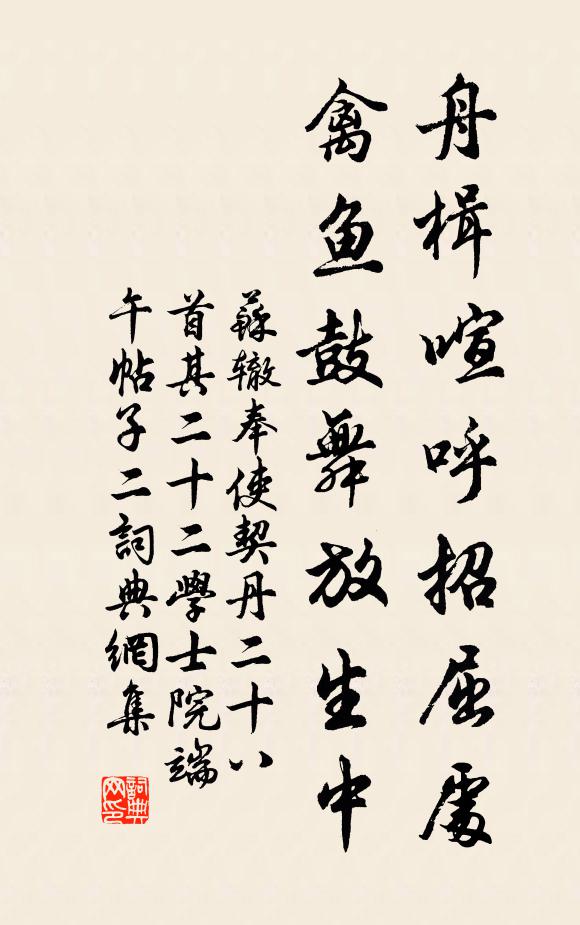 舟楫喧呼招屈處
禽魚鼓舞放生中
蘇辙奉使契丹二十八
首其二十二學士院端
午帖子二詞典網集
詞典
网印